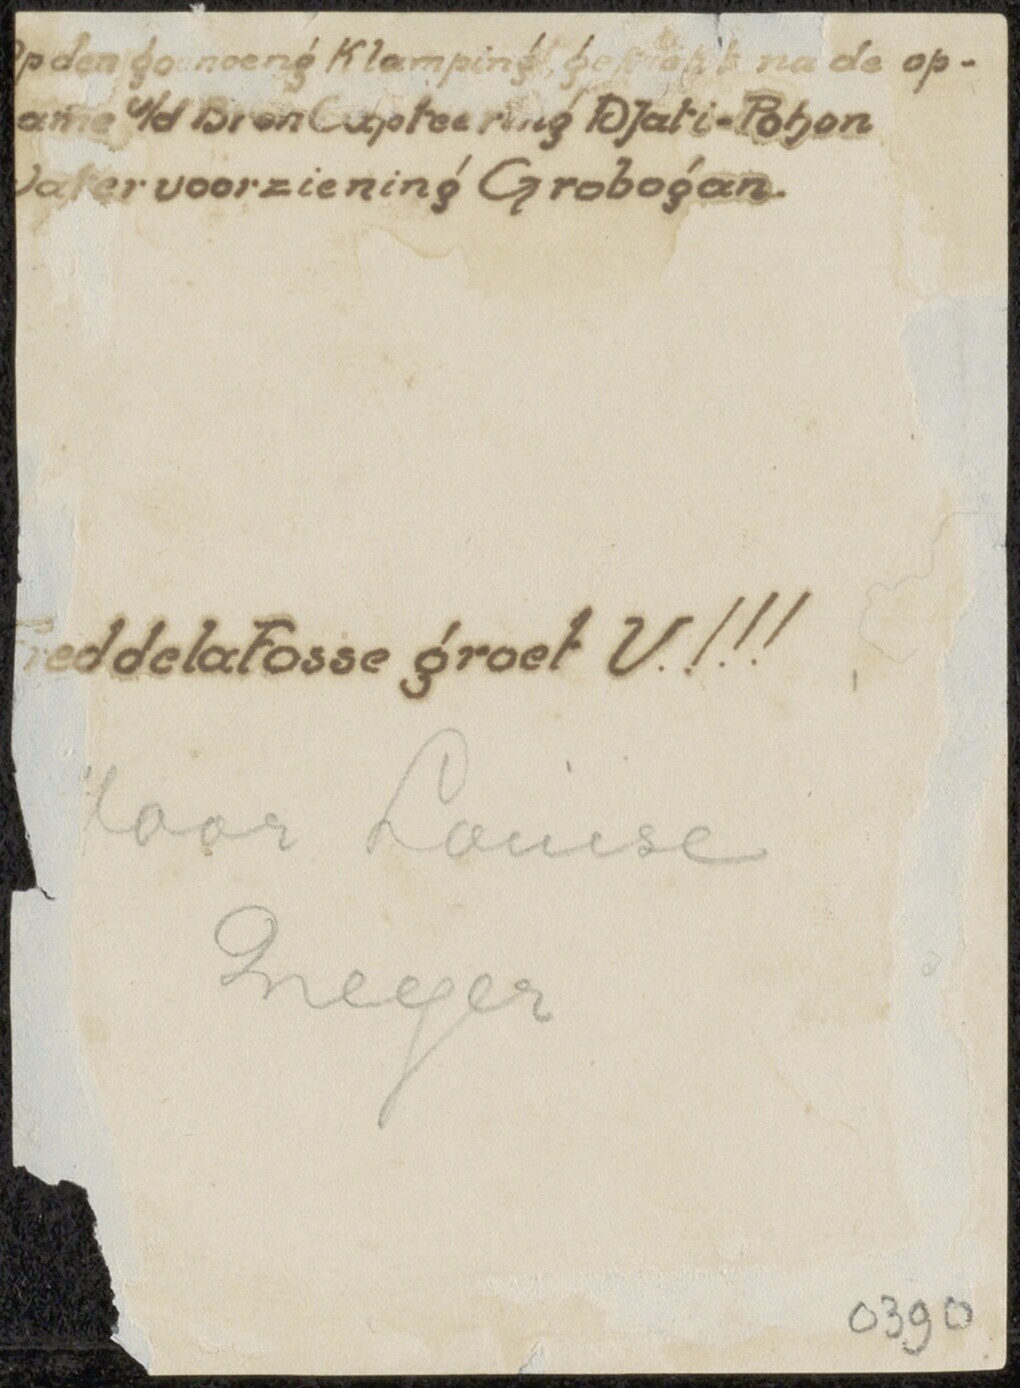 Op den goenoeng Klamping, na de op-
ame v/d Bron Capteering Djati-Pohon
Watervoorziening Grobogan.
red dela Fosse groet U.!!!
Voor Louise
0390